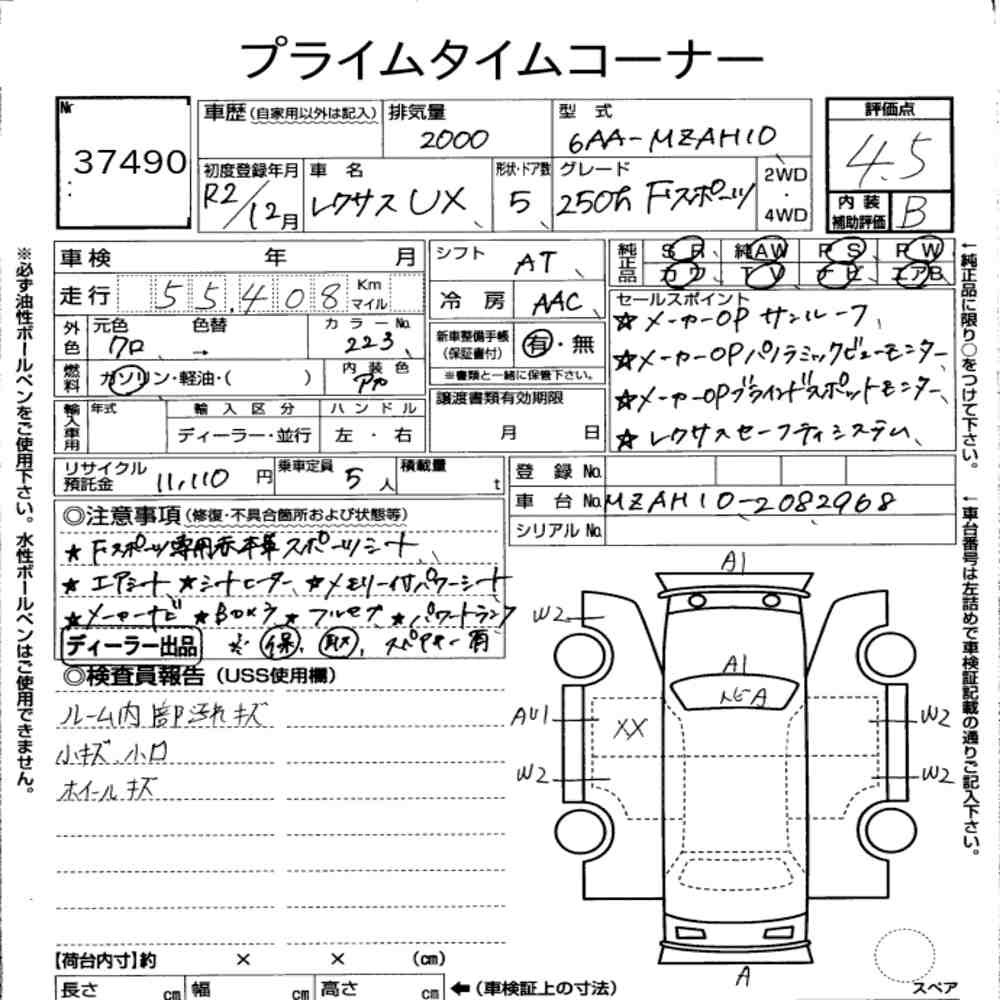 プライムタイムコーナー
Nr
37490
車歴(自家用以外は記入)
排気量
2000
型式
6AA-MZAH10
評価点
4.5
初度登録年月
R2/12月
車名
レクサス UX
形状・ドア数
5
グレード
250h Fスポーツ
2WD
・
4WD
内装
補助評価
B
※必ず油性ボールペンをご使用下さい。水性ボールペンはご使用できません。
車検 年 月
走行 55,408 Km
マイル
シフト
AT
冷房
AAC
純正品
SR 純AW PS PW
カワ TV ナビ エアB
外色
元色
クロ
色替
→
カラーNo.
223
新車整備手帳
(保証書付)
有・無
※書類と一緒に保管下さい。
燃料
ガソリン・軽油・( )
内装色
アカ
輸入車用
年式
輸入区分
ディーラー・並行
ハンドル
左・右
譲渡書類有効期限
月 日
セールスポイント
☆メーカーOP サンルーフ
☆メーカーOPパノラミックビューモニター
☆メーカーOPブラインドスポットモニター
☆レクサスセーフティシステム
←純正品に限り○をつけて下さい。
リサイクル
預託金
11,110円
乗車定員
5人
積載量
t
登録No.
車台No.
MZAH10-2082968
シリアルNo.
←車台番号は左詰めで車検証記載の通りご記入下さい。
◎注意事項(修復・不具合箇所および状態等)
★Fスポーツ専用赤本革スポーツシート
★エアシート ★シートヒーター ★メモリー付パワーシート
★メーカーナビ ★Bカメラ ★フルセグ ★パワートランク
ディーラー出品 ※ 保 取 スペアキー有
◎検査員報告(USS使用欄)
ルーム内 部汚れキズ
小キズ 小凹
ホイールキズ
A1
W2
A1
AU1
XX
W2
W2
W2
A
スペア
【荷台内寸】約 × × (cm)
長さ cm 幅 cm 高さ cm ←(車検証上の寸法)